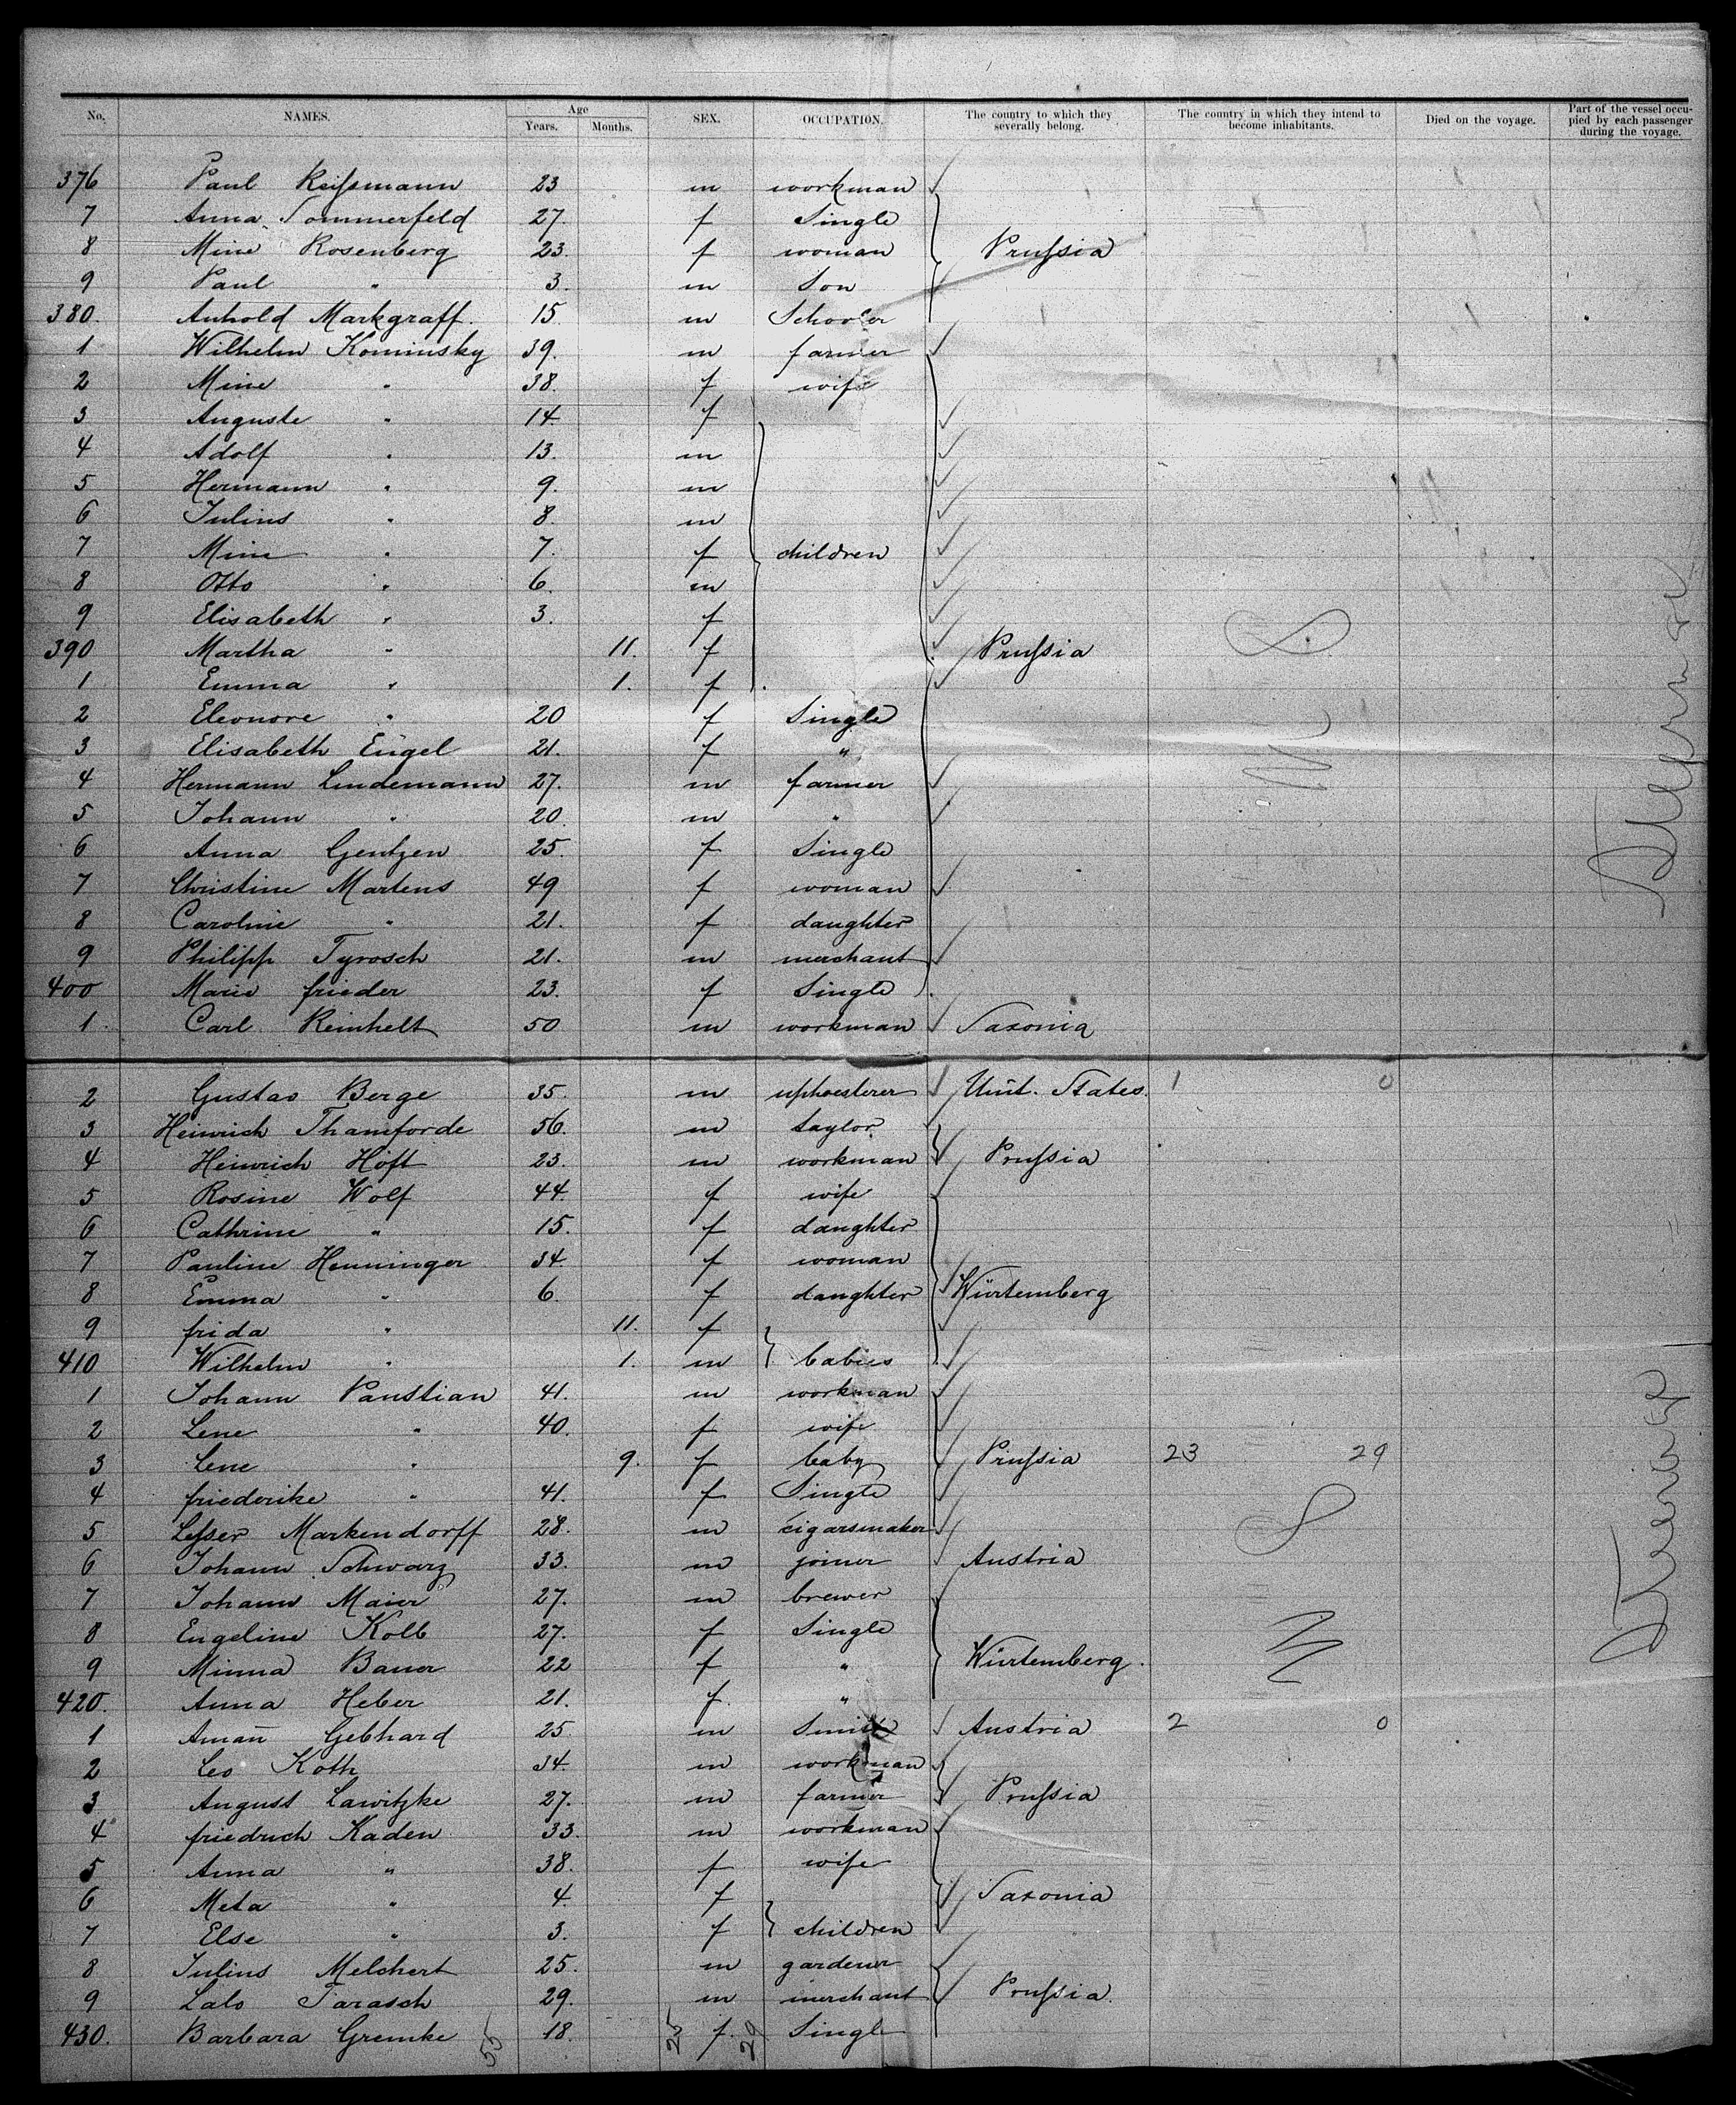 No. NAMES. Age Years. Months. SEX. OCCUPATION. The country to which they severally belong. The country in which they intend to become inhabitants. Died on the voyage. Part of the vessel occupied by each passenger during the voyage.
376 Paul Reiſsmann 23 m workman
7 Anna Sommerfeld 27. f Single
8 Mine Rosenberg 23. f woman Pruſsia
9 Paul " 3. m Son
380. Anhold Markgraff. 15. m Schooler
1 Wilhelm Kominsky 39. m farmer
2 Mine " 38. f wife
3 Auguste " 14. f
4 Adolf " 13. m
5 Hermann " 9. m
6 Julius " 8. m
7 Mine " 7. f children
8 Otto " 6. m
9 Elisabeth " 3. f
390 Martha " 11. f Pruſsia
1 Emma " 1. f
2 Eleonore " 20 f Single
3 Elisabeth Engel 21. f "
4 Hermann Lindemann 27. m farmer
5 Johann " 20. m "
6 Anna Gentzen 25. f Single
7 Christine Martens 49 f woman
8 Caroline " 21. f daughter
9 Philipp Tyrosch 21. m merchant
400 Marie frieder 23. f Single
1. Carl Reinhelt 50 m workman Saxonia
2 Gustav Berge 35. m upholsterer Unit. States. 1 0
3 Heinrich Thameforde 56. m taylor
4 Heinrich Höft 23. m workman Pruſsia
5 Rosine Wolf 44. f wife
6 Cathrine " 15. f daughter
7 Pauline Henninger 34. f woman
8 Emma " 6. f daughter Würtemberg
9 frida " 11. f
410 Wilhelm " 1. m babies
1 Johann Paustian 41. m workman
2 Lene " 40. f wife
3 Lene " 9. f baby Pruſsia 23 29
4 friederike " 41. f Single
5 Leſser Markendorff 28. m cigarsmaker
6 Johann Schwarz 33. m joiner Austria
7 Johann Maier 27. m brewer
8 Engeline Kolb 27. f Single
9 Minna Bauer 22 f " Würtemberg.
420. Anna Heber 21. f. "
1 Amañ Gebhard 25 m Smith Austria 2 0
2 Leo Koth 34. m workman
3 August Lawitzke 27. m farmer Pruſsia
4 friedrich Kaden 33. m workman
5 Anna " 38. f wife
6 Meta " 4. f Saxonia
7 Else " 3. f children
8 Julius Melchert 25. m gardener
9 Lalo Tarasch 29. m merchant Pruſsia.
430. Barbara Gremke 18. f. Single
55 25 29